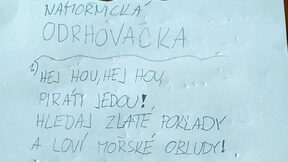 NÁMOŘNICKÁ
ODRHOVAČKA
1) HEJ HOU, HEJ HOU,
PIRÁTI JEDOU!
HLEDAJ ZLATÉ POKLADY
A LOVÍ MOŘSKÉ OBLUDY!